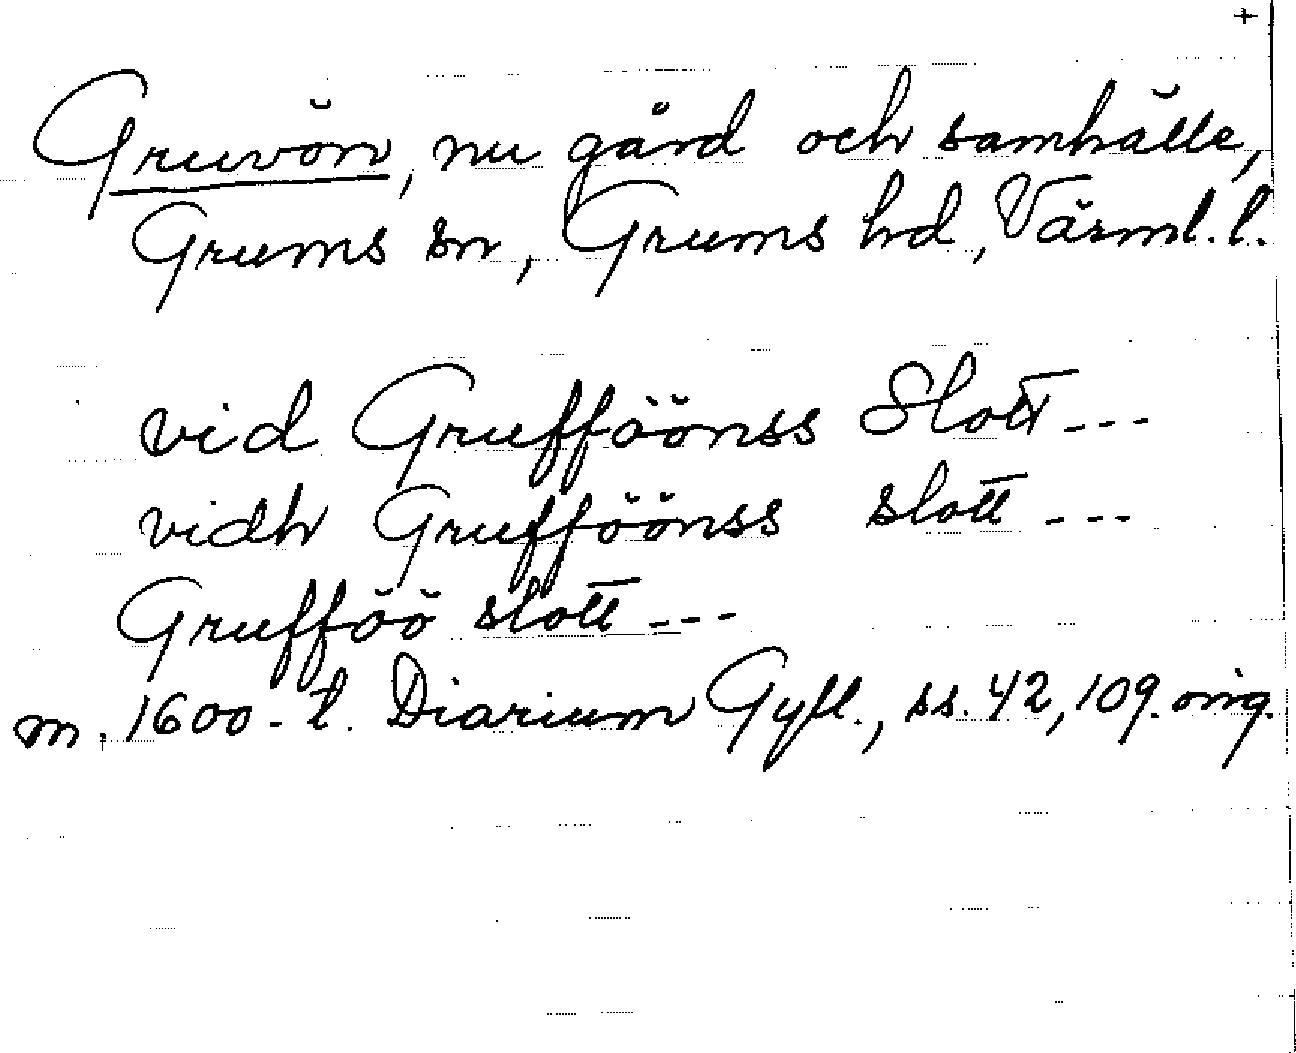 +
Gruvön, nu gård och samhälle,
Grums sn, Grums hd, Värml. l.
vid Grufföönss Slott ---
vidh Grufföönss slott ---
Grufföö slott ---
m. 1600-t. Diarium Gyll., ss. 42, 109. orig.